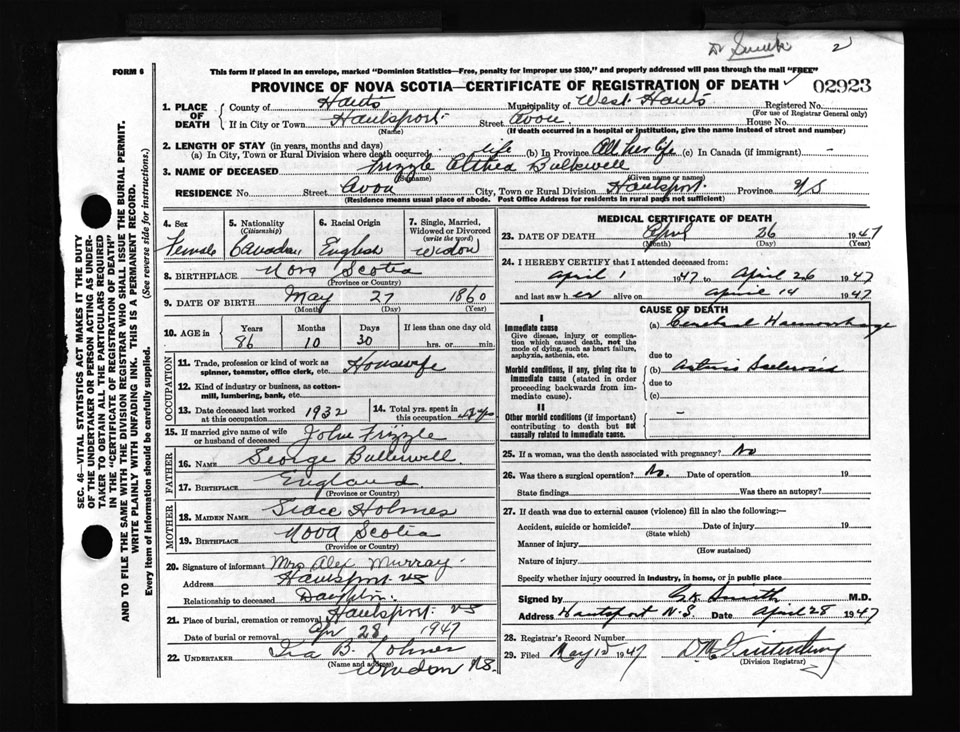 Dr Smith 2
FORM 6 This form if placed in an envelope, marked "Dominion Statistics—Free, penalty for improper use $300," and properly addressed will pass through the mail "FREE"
PROVINCE OF NOVA SCOTIA—CERTIFICATE OF REGISTRATION OF DEATH 02923
1. PLACE OF DEATH County of Hants Municipality of West Hants Registered No.
(For use of Registrar General only)
If in City or Town Hantsport Street Avon House No.
(Name) (If death occurred in a hospital or institution, give the name instead of street and number)
2. LENGTH OF STAY (in years, months and days)
(a) In City, Town or Rural Division where death occurred life (b) In Province All her life (c) In Canada (if immigrant) -
3. NAME OF DECEASED Frizzle Althea
(Surname) (Given name or names)
RESIDENCE No. Street Avon City, Town or Rural Division Hantsport. Province N/S
(Residence means usual place of abode. Post Office Address for residents in rural parts not sufficient)
4. Sex 5. Nationality (Citizenship) 6. Racial Origin 7. Single, Married, Widowed or Divorced (write the word)
Female Canadian English Widow
8. BIRTHPLACE Nova Scotia
(Province or Country)
9. DATE OF BIRTH May 27 1860
(Month) (Day) (Year)
10. AGE in Years Months Days If less than one day old
86 10 30 hrs. or min.
OCCUPATION
11. Trade, profession or kind of work as spinner, teamster, office clerk, etc. Housewife
12. Kind of industry or business, as cotton-mill, lumbering, bank, etc.
13. Date deceased last worked at this occupation 1932 14. Total yrs. spent in this occupation
15. If married give name of wife or husband of deceased John Frizzle
FATHER
16. NAME George
17. BIRTHPLACE England
(Province or Country)
MOTHER
18. MAIDEN NAME Grace Holmes
19. BIRTHPLACE Nova Scotia
(Province or Country)
20. Signature of informant Mrs Alex Murray
Address Hantsport NS
Relationship to deceased Daughter
21. Place of burial, cremation or removal Hantsport NS
Date of burial or removal Apr 28 1947
22. UNDERTAKER Ira B.
(Name and address) Windsor N.S.
MEDICAL CERTIFICATE OF DEATH
23. DATE OF DEATH April 26 1947
(Month) (Day) (Year)
24. I HEREBY CERTIFY that I attended deceased from:
April 1 1947 to April 26 1947
and last saw her alive on April 14 1947
CAUSE OF DEATH
I
Immediate cause (a) Cerebral Haemorrhage
Give disease, injury or complication which caused death, not the mode of dying, such as heart failure, asphyxia, asthenia, etc.
due to
Morbid conditions, if any, giving rise to immediate cause (stated in order proceeding backwards from immediate cause). (b)
due to
(c)
II
Other morbid conditions (if important) contributing to death but not causally related to immediate cause. -
25. If a woman, was the death associated with pregnancy? No
26. Was there a surgical operation? No. Date of operation 19
State findings Was there an autopsy?
27. If death was due to external causes (violence) fill in also the following:—
Accident, suicide or homicide? Date of injury 19
(State which)
Manner of injury
(How sustained)
Nature of injury
Specify whether injury occurred in industry, in home, or in public place
Signed by Smith M.D.
Address Hantsport N.S. Date April 28 1947
28. Registrar's Record Number
29. Filed May 12 1947
(Division Registrar)
SEC. 46—VITAL STATISTICS ACT MAKES IT THE DUTY
OF THE UNDERTAKER OR PERSON ACTING AS UNDER-
TAKER TO OBTAIN ALL THE PARTICULARS REQUIRED
IN THE "CERTIFICATE OF REGISTRATION OF DEATH"
AND TO FILE THE SAME WITH THE DIVISION REGISTRAR WHO SHALL ISSUE THE BURIAL PERMIT.
WRITE PLAINLY WITH UNFADING INK. THIS IS A PERMANENT RECORD.
Every item of information should be carefully supplied. (See reverse side for instructions.)